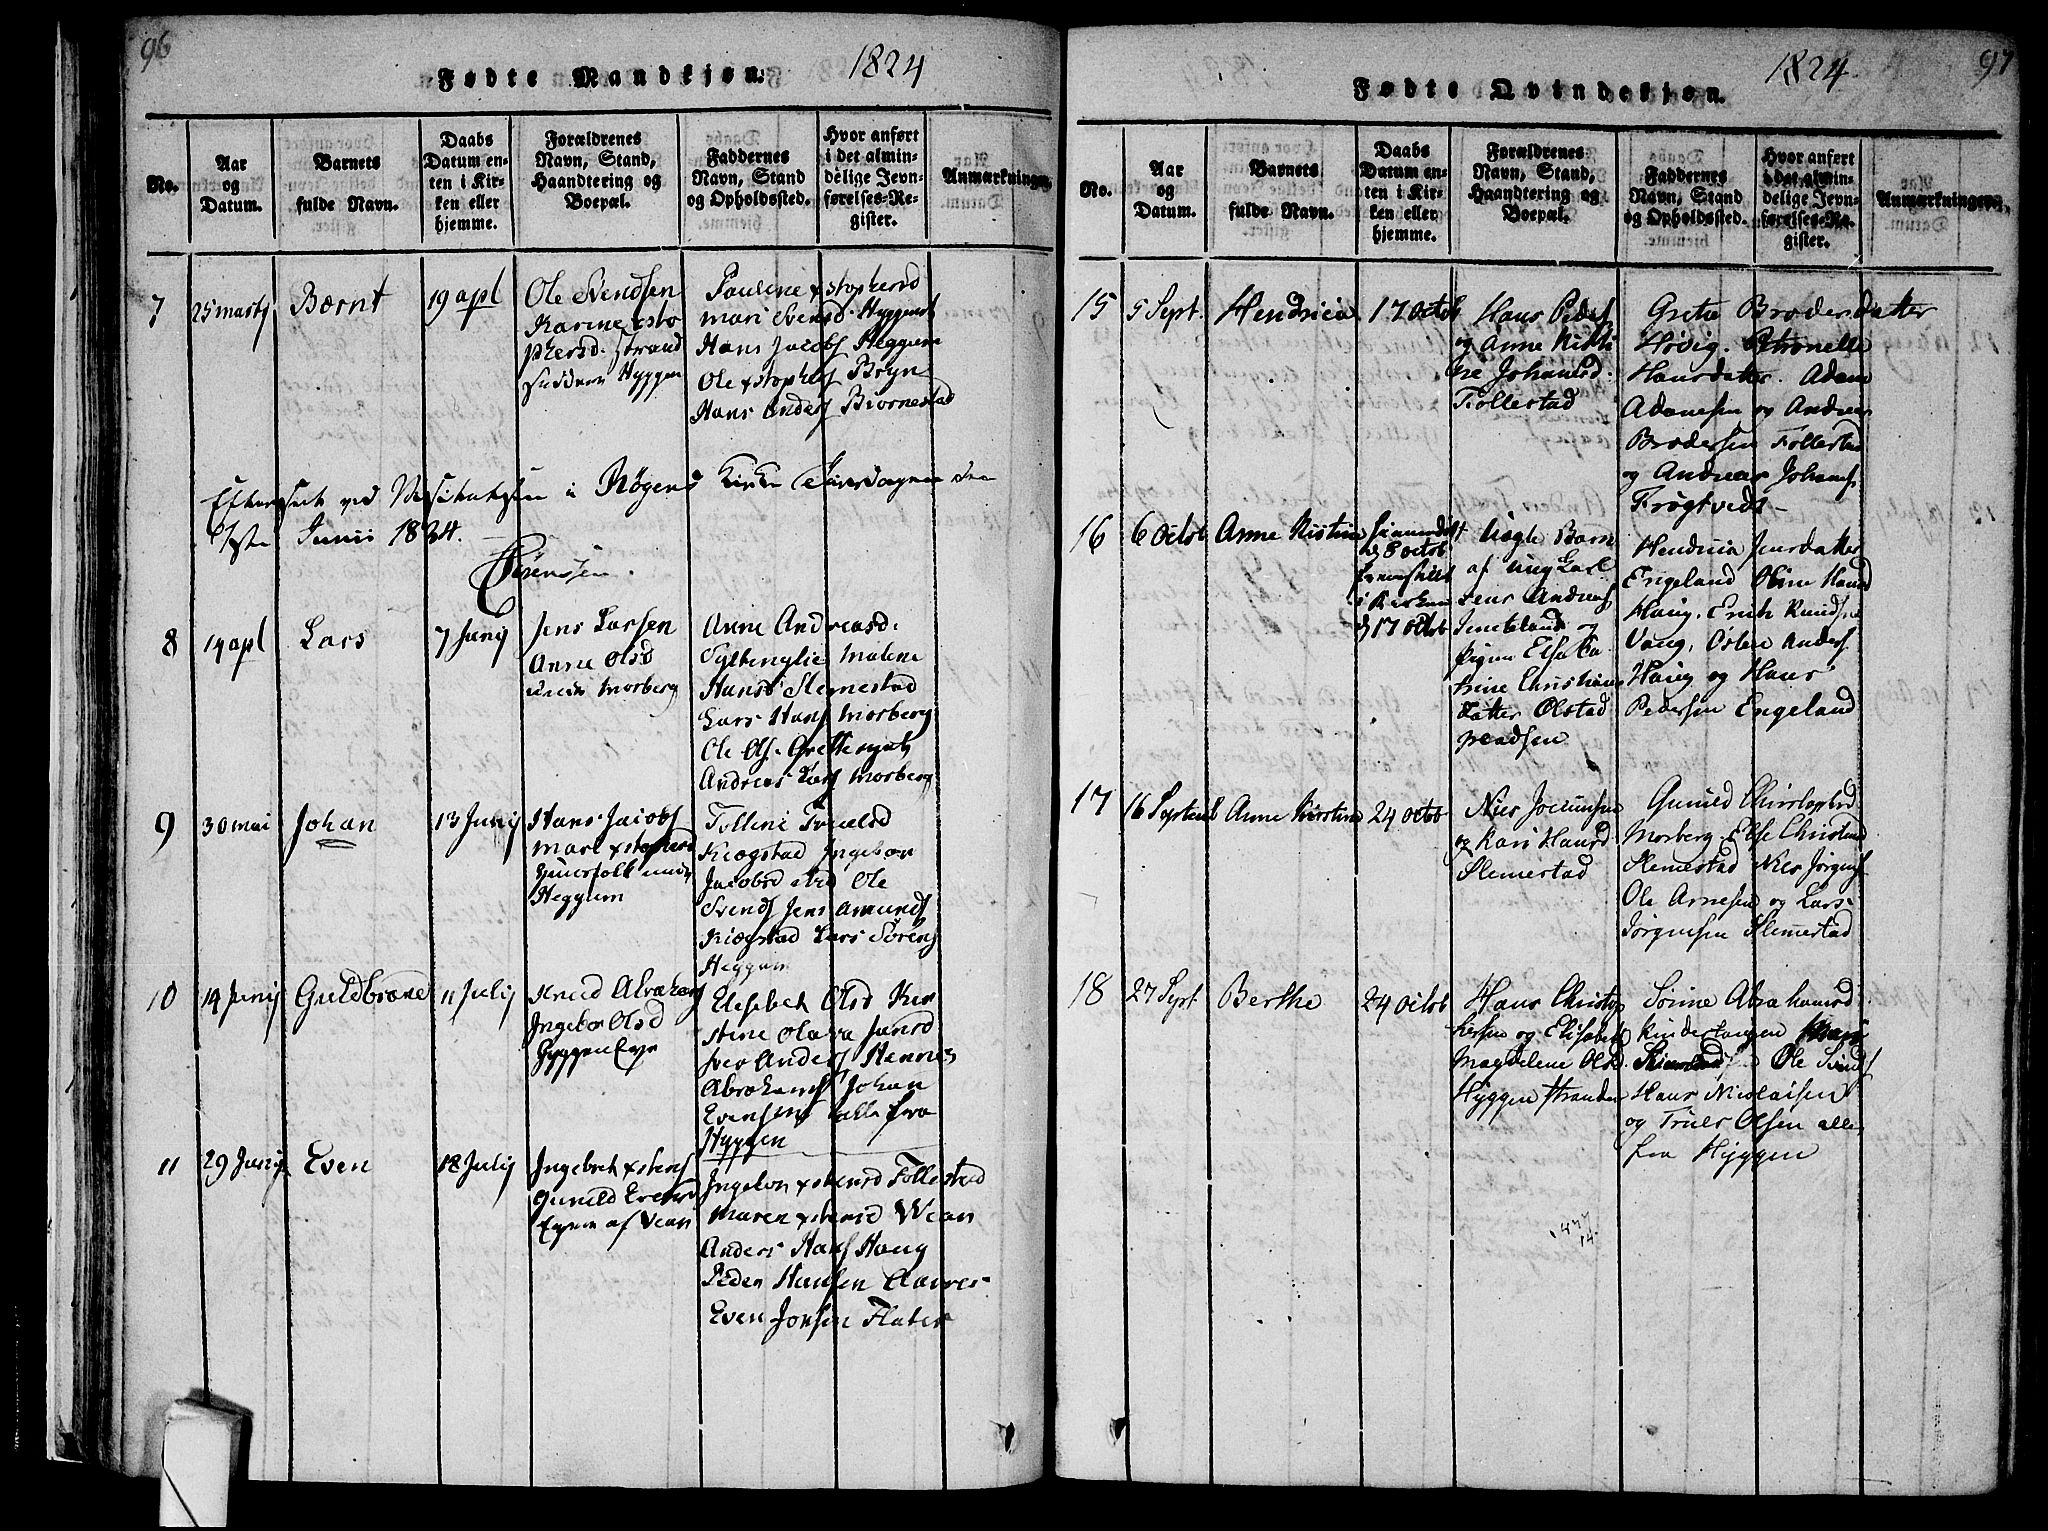 96
Fødte Mandkjøn. 1824
No.
Aar og Datum.
Barnets fulde Navn.
Daabs Datum enten i Kirken eller hjemme.
Forældrenes Navn, Stand, Haandtering og Boepæl.
Faddernes Navn, Stand og Opholdssted.
Hvor anført i det almindelige Jevnførelses-Register.
Anmærkninger.
7 25 martj Bærnt 19 apl
Ole Svendsen
Karine xsto
phersd. Strand
Hyggen
Pauline xstophersd
mari Svensd. Hyggen
Hans Jacobs Heggum
Ole xstophers Bryn
Hans Anders Biornestad
Efterseet ved Visitatsen i Røgens Kirke Tirsdagen den
1ste Junii 1824.
Sørenssen.
8 19 apl Lars 7 Junij
Jens Larsen
Anne Olsd
Morberg
Anne Andreasd.
Malene
Hansd Slemestad
Lars Hans Morberg
Ole Ols.
Andreas Lars Morberg
9 30 mai Johan 13 Junij
Hans Jacobs
mari xstophersd
Heggum
Kiøgstad Ingebor
Jacobsd Ole
Svends Jens Amunds
Kiøgstad Lars Sørens
Heggum
10 14 Junij Guldbrane 11 Julij
Knud Abrahams
Ingebor Olsd
Hyggen Eye
Elesebet Olsd Kir
stine Olava Jensd
Iver Anders Hannes
Abrahams Johan
Evensen alle fra
Hyggen
11 29 Junij Even 18 Julij
Ingebret xstens
Gunild Evensd
Eyern af Vean
Ingebor xstensd Follestad
Maren xstensd Wean
Anders Hans Haug
Peder Hansen Aanres
Even Jonsen Flater
97
Fødte Qvindekjøn. 1824.
No.
Aar og Datum.
Barnets fulde Navn.
Daabs Datum enten i Kirken eller hjemme.
Forældrenes Navn, Stand, Haandtering og Boepæl.
Faddernes Navn, Stand og Opholdssted.
Hvor anført i det almindelige Jevnførelses-Register.
Anmærkninger.
15 5 Sept. Hendrica 17 Octob
Hans Peders
og Anne Kisti
ne Johansd.
Follestad
Grete Brodersdatter
Høvig. Petronelle
Hansdatter. Adam
Adamsen og Andreas
Brodersen Follestad
og Andreas Johans.
Frøgtvedt
16 6 Octob Anne Kistine hiemmedøbt
d 8 Octob
fremstillet
i Kirken
d 17 Octob
Uægte Barn
af Ung Karl
Jens Andreas
og
Pigen Else Ca
trine Christians
datter Olstad
Hendrica Jensdatter
Engeland Oline Hansd
Haug, Erich Knudsen
Vang, Osten Anders.
Haug og Hans
Pedersen Engeland
17 16 Septemb Anne Kirstine 24 Octob
Niels Jocumsen
og Kari Hansd.
Slemestad
Gunild Christophersd
Morberg, Else Christensd
Slemestad Niels Jørgens
Ole Arnesen og Lars
Jørgensen Slemestad
18 27 Sept Berthe 24 Octob
Hans Christop
hersen og Elisabet
Magdelene Olsd.
Hyggen Stranden
Sørine Abrahamsd
Kindertangen
Ole Svends
Hans Nicolaisen
og Truels Olsen alle
fra Hyggen
477
14